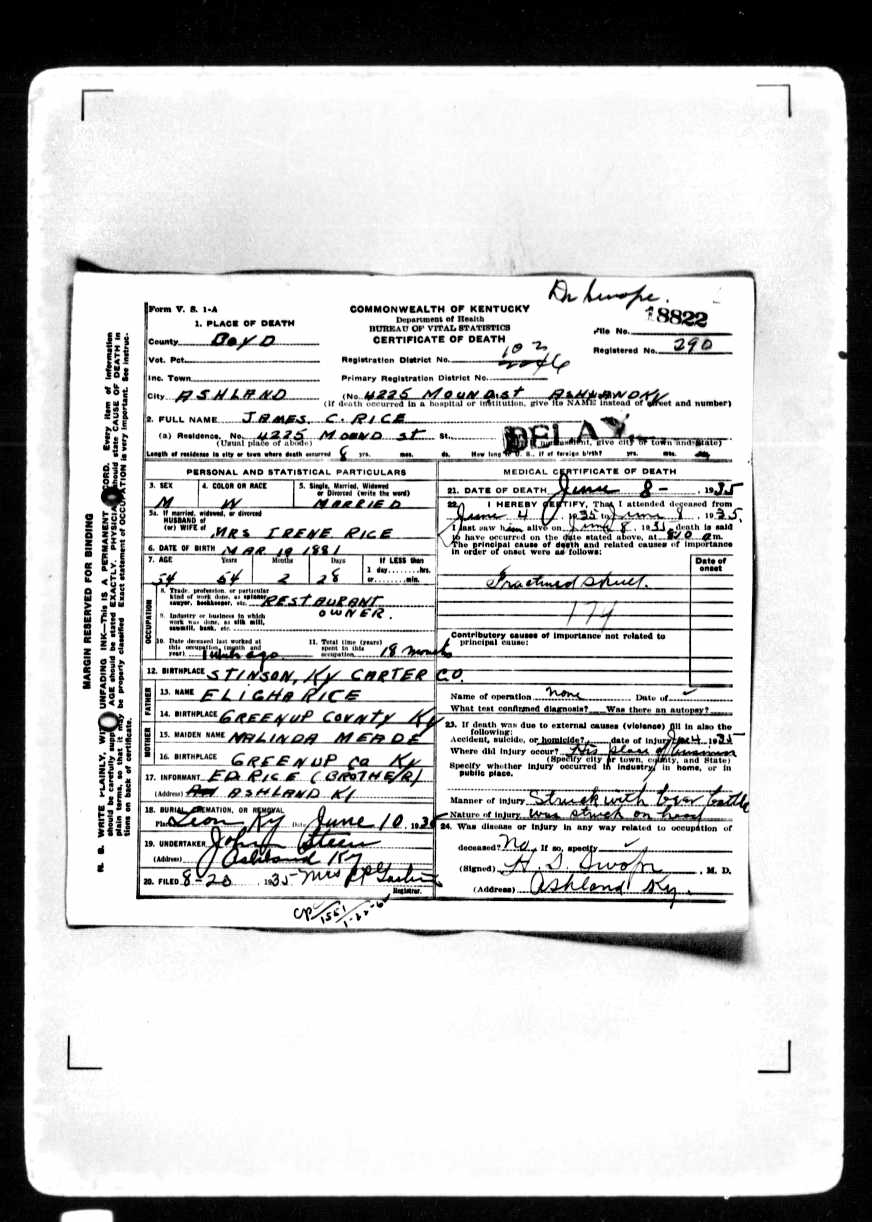 Dr Swope.
Form V. S. 1-A
COMMONWEALTH OF KENTUCKY
Department of Health
BUREAU OF VITAL STATISTICS
CERTIFICATE OF DEATH
18822
File No.
Registered No. 290
1. PLACE OF DEATH
County BOYD
Vot. Pct.
Inc. Town
City ASHLAND
Registration District No. 102
Primary Registration District No.
(No. 4225 MOUND ST ASHLAND KY
(If death occurred in a hospital or institution, give its NAME instead of street and number)
2. FULL NAME JAMES. C. RICE
(a) Residence. No. 4225 MOUND ST St.,
(Usual place of abode)
DELAY
(If nonresident, give city or town and State)
Length of residence in city or town where death occurred 8 yrs. mos. ds. How long in U. S., if of foreign birth? yrs. mos. ds.
PERSONAL AND STATISTICAL PARTICULARS
3. SEX
M
4. COLOR OR RACE
W
5. Single, Married, Widowed
or Divorced (write the word)
MARRIED
5a. If married, widowed, or divorced
HUSBAND of
(or) WIFE of MRS IRENE RICE
6. DATE OF BIRTH MAR 10 1881
7. AGE Years Months Days If LESS than
1 day, hrs.
or min.
54 54 2 28
OCCUPATION
8. Trade, profession, or particular
kind of work done, as spinner,
sawyer, bookkeeper, etc. RESTAURANT
OWNER.
9. Industry or business in which
work was done, as silk mill,
sawmill, bank, etc.
10. Date deceased last worked at
this occupation (month and
year) 1 week ago
11. Total time (years)
spent in this
occupation 18 months
12. BIRTHPLACE STINSON, KY CARTER CO.
FATHER
13. NAME ELIGHA RICE
14. BIRTHPLACE GREENUP COUNTY KY
MOTHER
15. MAIDEN NAME MALINDA MEADE
16. BIRTHPLACE GREENUP CO KY
17. INFORMANT ED RICE (BROTHER)
(Address) ASHLAND KY
18. BURIAL, CREMATION, OR REMOVAL
Place Leon Ky Date June 10, 1935
19. UNDERTAKER John Steen
(Address) Ashland Ky
20. FILED 8-20 1935 Mrs
Registrar.
MEDICAL CERTIFICATE OF DEATH
21. DATE OF DEATH June 8 - , 1935
22. I HEREBY CERTIFY, That I attended deceased from
June 4, 1935 to June 8, 1935.
I last saw him alive on June 8, 1935, death is said
to have occurred on the date stated above, at 810 a m.
The principal cause of death and related causes of importance
in order of onset were as follows:
Date of
onset
Fractured Skull.
174
Contributory causes of importance not related to
principal cause:
Name of operation none Date of
What test confirmed diagnosis? Was there an autopsy?
23. If death was due to external causes (violence) fill in also the
following:
Accident, suicide, or homicide? date of injury June 4 1935
Where did injury occur? His place of business
(Specify city or town, county, and State)
Specify whether injury occurred in industry, in home, or in
public place.
Manner of injury Struck with beer bottle
Nature of injury was struck on head
24. Was disease or injury in any way related to occupation of
deceased? No If so, specify
(Signed) H. S. Swope, M. D.
(Address) Ashland Ky.
MARGIN RESERVED FOR BINDING
N. B. WRITE PLAINLY, WITH UNFADING INK—This IS A PERMANENT RECORD. Every item of information
should be carefully supplied. AGE should be stated EXACTLY. PHYSICIANS should state CAUSE OF DEATH in
plain terms, so that it may be properly classified. Exact statement of OCCUPATION is very important. See instruc-
tions on back of certificate.